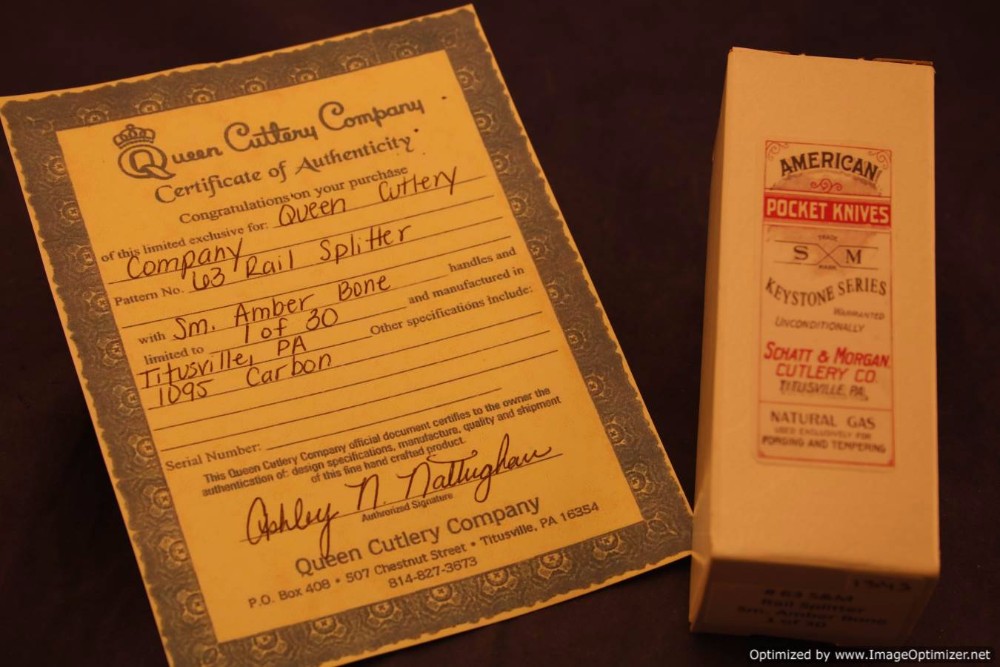 Queen Cutlery Company
Certificate of Authenticity
Congratulations on your purchase
of this limited exclusive for: Queen Cuttery
Company
Pattern No. 63 Rail Splitter
with Sm. Amber Bone handles and
limited to 1 of 30 and manufactured in
Titusville, PA Other specifications include:
1095 Carbon
Serial Number:
This Queen Cutlery Company official document certifies to the owner the
authentication of: design specifications, manufacture, quality and shipment
of this fine hand crafted product.
Ashley N.
Authorized Signature
Queen Cutlery Company
P.O. Box 408 • 507 Chestnut Street • Titusville, PA 16354
814-827-3673
AMERICAN
POCKET KNIVES
TRADE
S M
MARK
KEYSTONE SERIES
WARRANTED
UNCONDITIONALLY
SCHATT & MORGAN
CUTLERY CO.
TITUSVILLE, PA.
NATURAL GAS
USED EXCLUSIVELY FOR
FORGING AND TEMPERING
# 63 S&M
Rail Splitter
Sm. Amber Bone
1 of 30
Optimized by www.ImageOptimizer.net